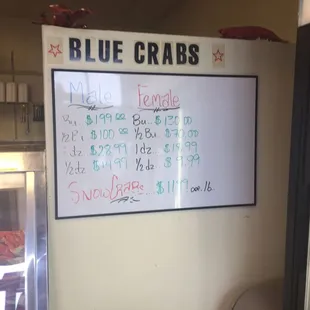 BLUE CRABS
Male Female
Bu. $199.00 Bu... $130.00
1/2 Bu $100.00 1/2 Bu. $70.00
1 dz $28.99 1 dz $18.99
1/2 dz $14.97 1/2 dz $9.99
SNOW CRABS... $11.99